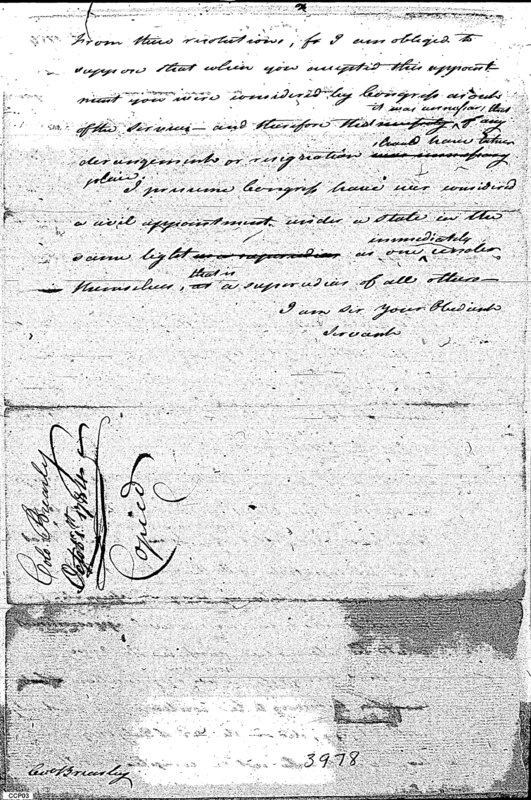 From these resolutions, sr I am obliged to
suppose that when you accepted this appoint-
ment you were considered by Congress as out
of the service — and therefore that it was unnecessary that any
derangement or resignation should have taken
place.
I presume Congress have ever considered
a civil appointment under a State in the
same light as a supersedeas as one immediately under
themselves, that is as a supersedeas of all others —
I am sir your Obedient
Servant
Colo. Brearly
Octob 1784
Copied
Colo Brearley
3978
CCP03